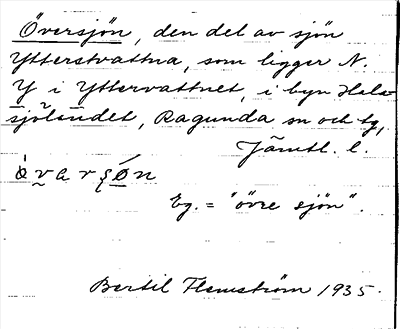 Översjön, den del av sjön
Ytterstvattna, som ligger N.
Y i Yttervattnet, i byn Hals-
sjölandet, Ragunda sn och tg,
Jämtl. l.
Eg. = "övre sjön".
Bertil Flemström 1935.